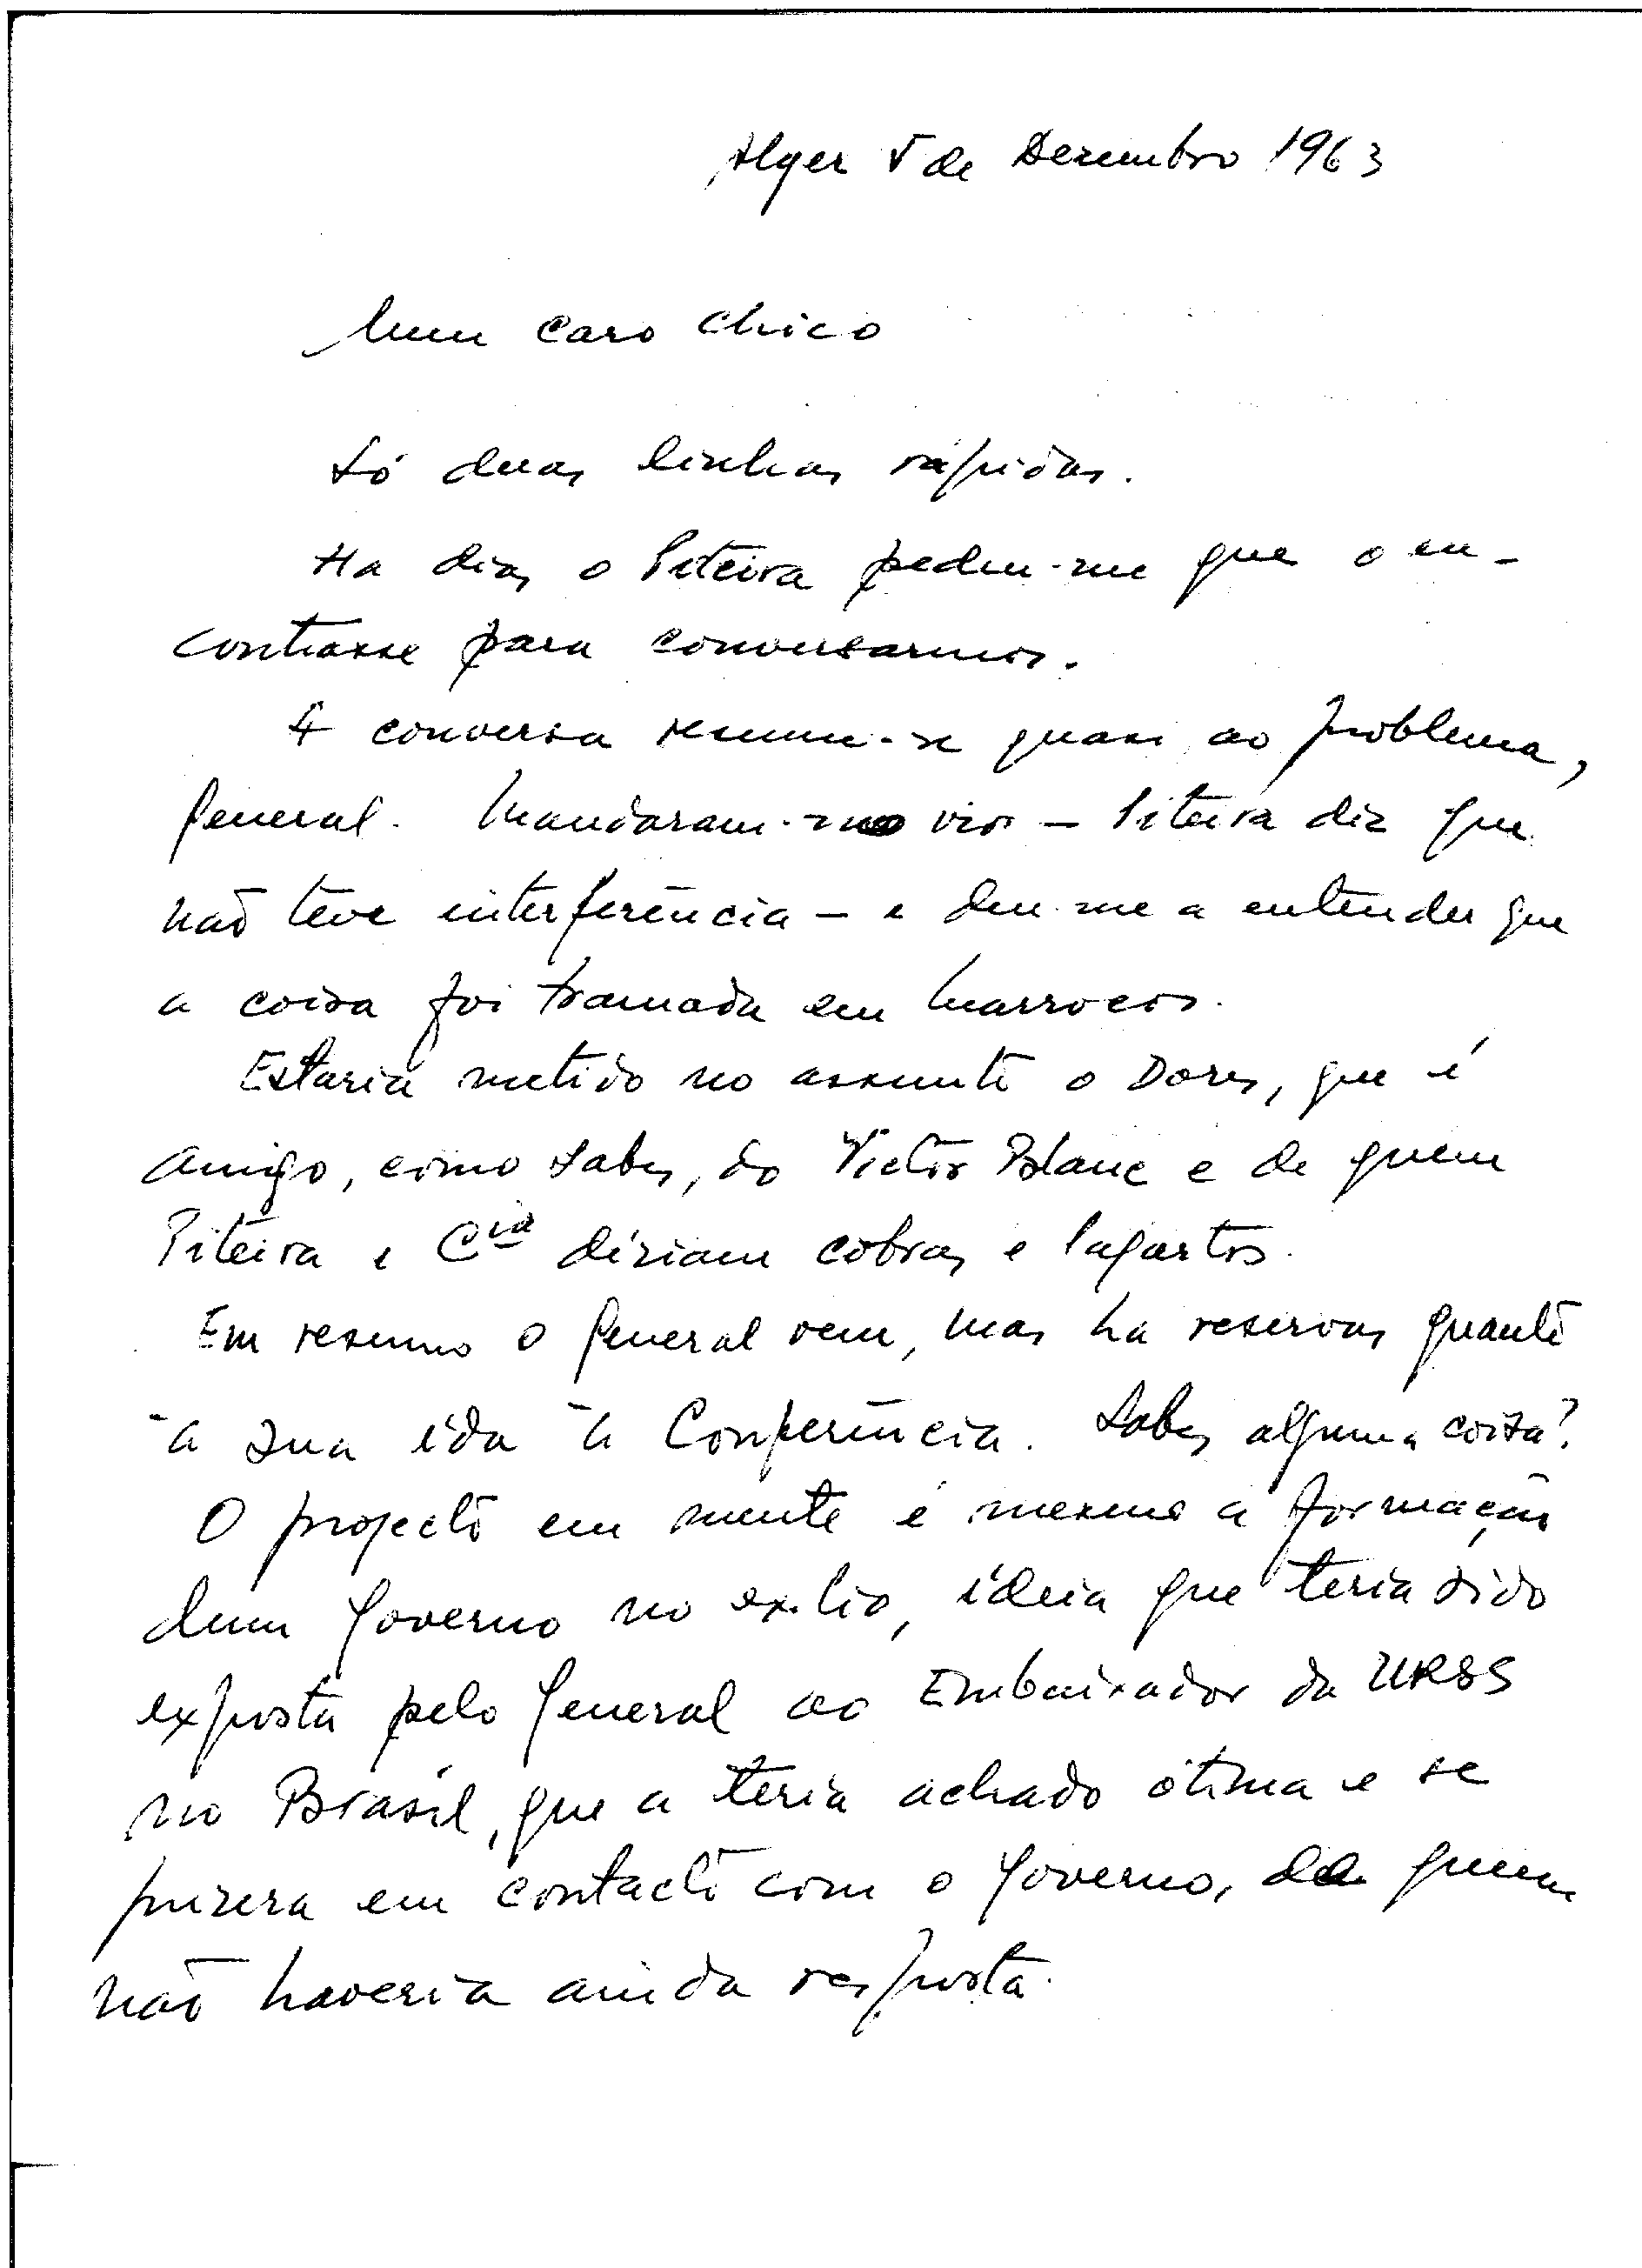 Alger 5 de Dezembro 1963
Meu caro Chico
Só duas linhas rápidas.
Ha dias o Piteira pediu-me que o en-
contrasse para conversarmos.
A conversa resume-se quasi ao problema,
General. Mandaram-no vir – Piteira diz que
não teve interferência – e deu-me a entender que
a coisa foi tramada em Marrocos.
Estaria metido no assunto o Dores, que é
amigo, como sabes, do Victor Blanc e de quem
Piteira e Cia diriam cobras e lagartos.
Em resumo o General vem, mas ha reservas quanto
à sua ida à Conferência. Sabes alguma coisa?
O projecto em mente é mesmo a formação
dum Governo no exílio, ideia que teria sido
exposta pelo General ao Embaixador da URSS
no Brasil, que a teria achado ótima e se
puzera em contacto com o Governo, de quem
não haveria ainda resposta.